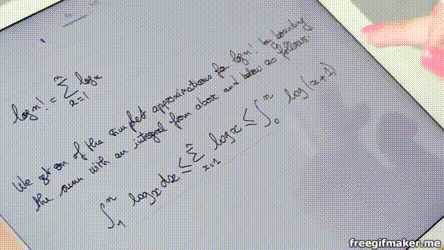 log n! = Σ_{x=1}^{n} log x
We get on of the simplest approximations for log n! by bounding
the sum with an integral from above and below as follows.
∫_1^n log x dx ≤ Σ_{x=1}^{n} log x ≤ ∫_0^n log (x+1)
freegifmaker.me